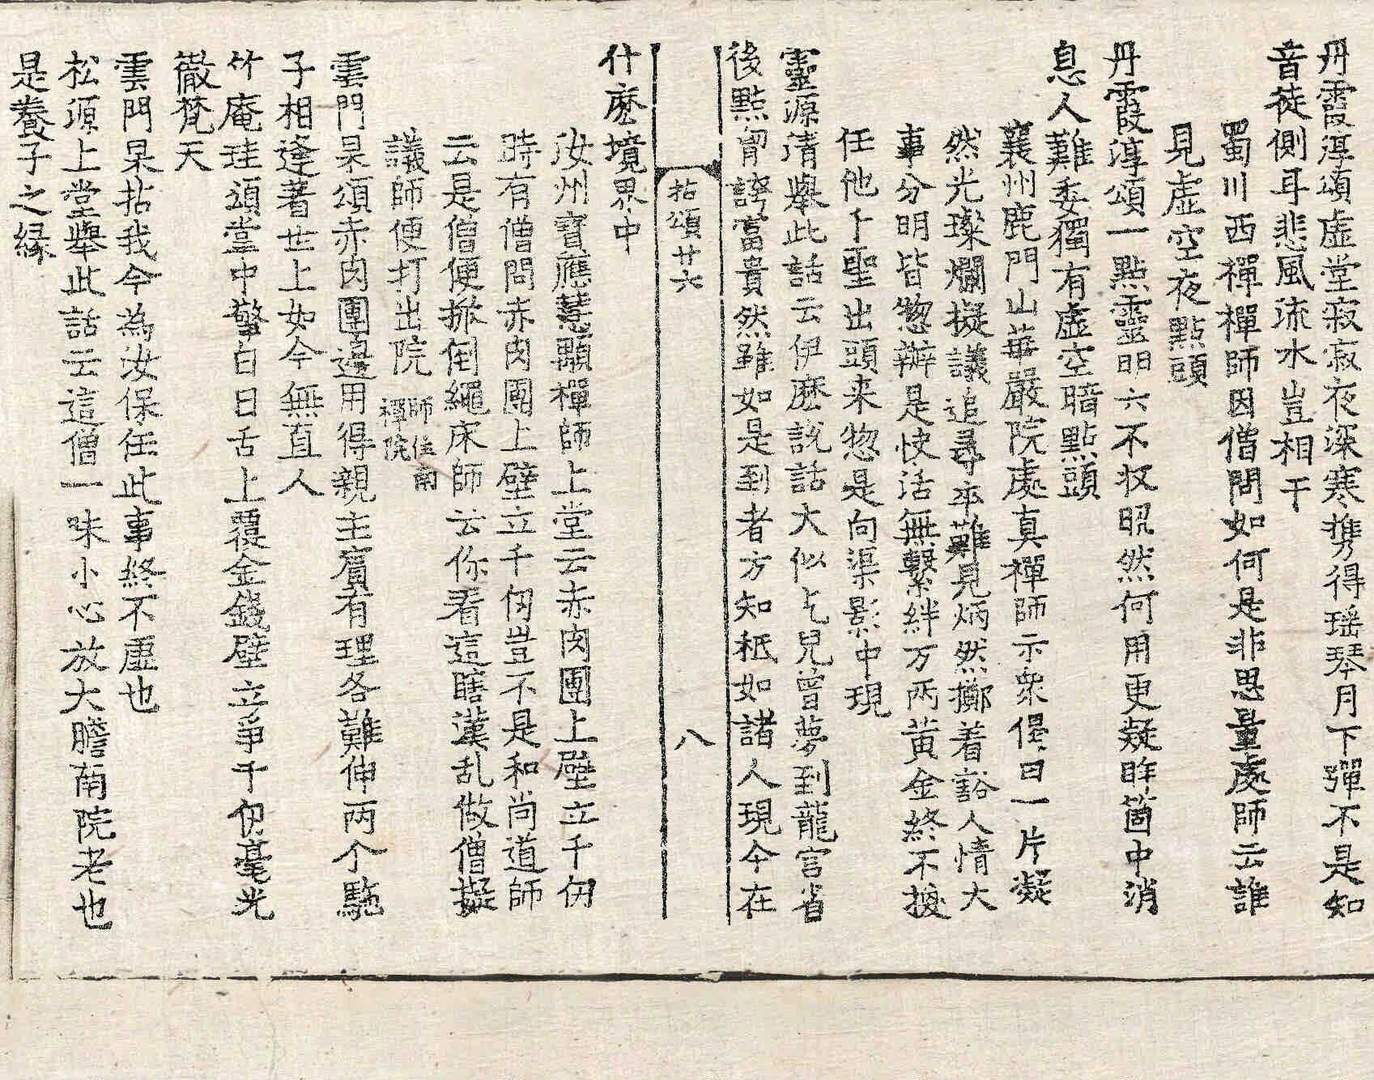 丹霞淳頌虛堂寂寂夜深寒携得瑶琴月下彈不是知
音徒側耳悲風流水豈相干
蜀川西禪禪師因僧問如何是非思量處師云誰
見虛空夜點頭
丹霞淳頌一點靈明六不收昭然何用更凝眸箇中消
息人難委獨有虛空暗點頭
襄州鹿門山華嚴院處真禪師示衆偈曰一片凝
然光璨爛擬議追尋卒難見炳然擲着豁人情大
事分明皆惣辦是快活無繫絆万兩黃金終不換
任他千聖出頭来惣是向渠影中現
靈源清舉此話云伊麽說話大似乞兒曾夢到龍宮省
後點胷誇富貴然雖如是到者方知秖如諸人現今在
拈頌廿六 八
什麽境界中
汝州寶應慧顒禪師上堂云赤肉團上壁立千仞
時有僧問赤肉團上壁立千仞豈不是和尚道師
云是僧便掀倒繩床師云你看這瞎漢乱做僧擬
議師便打出院 師住南禪院
雲門杲頌赤肉團邊用得親主賓有理各難伸两个駞
子相逢著世上如今無直人
竹庵珪頌掌中擎白日舌上覆金錢壁立爭千仞毫光
徹梵天
雲門杲拈我今為汝保任此事終不虛也
松源上堂舉此話云這僧一味小心放大膽南院老也
是養子之縁